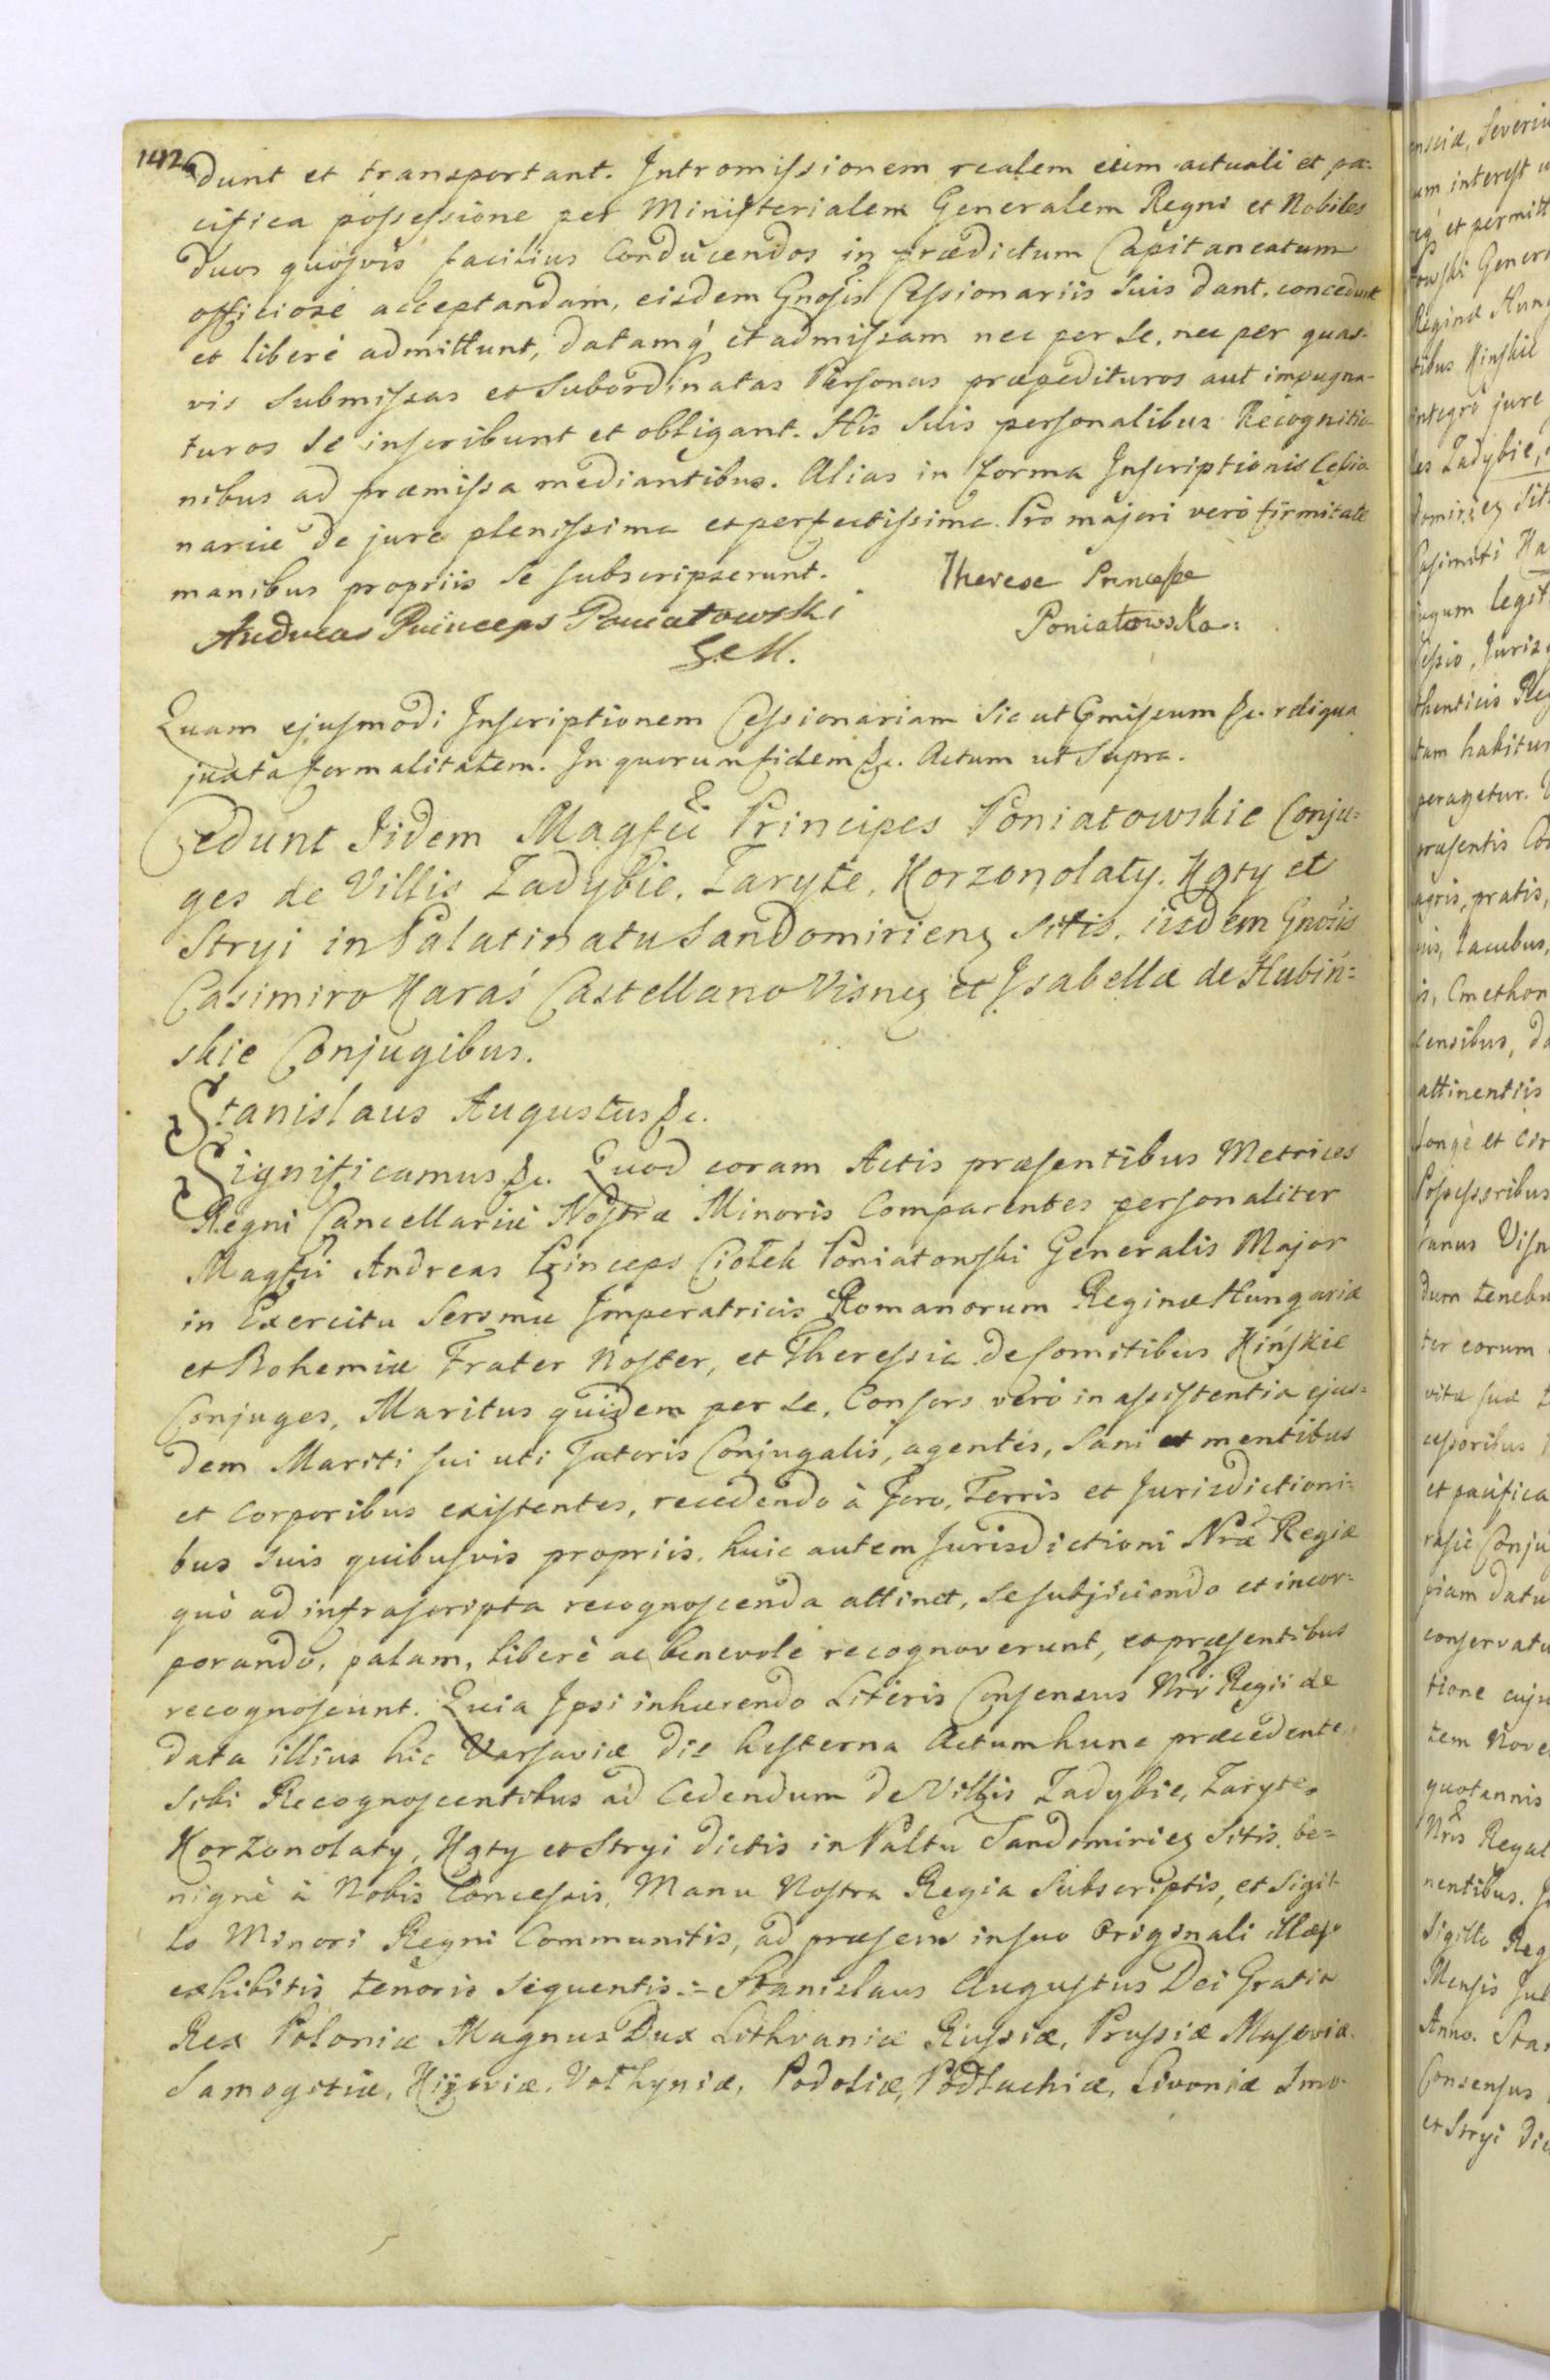 142
dunt et transportant. Intromissionem realem cum actuali et pa-
cifica possessione per Ministerialem Generalem Regni et Nobiles
duos quosvis facilius Conducendos in prædictum Capitaneatum
officiosè acceptandam, eisdem Gnosis Cessionariis suis dant, concedunt
et liberè admittunt, datamq́ et admissam nec per se, nec per quas-
vis submissas et Subordinatas Personas præpedituros aut impugna-
turos se inscribunt et obligant. His suis personalibus Recognitio
nibus ad præmissa mediantibus. Alias in forma Inscriptionis Cessio
nariæ de jure plenissima et perfectissima. Pro majori verò firmitate
manibus propriis se subscripserunt. Therese Princesse
Andreas Princeps Poniatowski Poniatowska:
G.M.
Quam ejusmodi Inscriptionem Cessionariam sic ut Gmissum &c. reliqua
juxta formalitatem. In quorum fidem &c. Actum ut Supra.
Cedunt Iidem Magfci Principes Poniatowskie Conju=
ges de Villis Zadybie, Zaryte, Korzonolaty, Kąty et
Stryi in Palatinatu Sandomirieng sitis, iisdem Gnosis
Casimiro Karaś Castellano Visneg et Isabellæ de Hubiń=
skie Conjugibus.
Stanislaus Augustus &c.
Significamus &c. Quod coram Actis præsentibus Metrices
Regni Cancellariæ Nostræ Minoris Comparentes personaliter
Magfci Andreas Princeps Ciołek Poniatowski Generalis Major
in Exercitu Sermæ Imperatricis Romanorum Reginæ Hungariæ
et Bohemiæ Frater Noster, et Theressia de Comitibus Kińskie
Conjuges, Maritus quidem per se, Consors verò in assistentia ejus=
dem Mariti sui uti Tutoris Conjugalis, agentes, sani et mentibus
et corporibus existentes, recedendo à Foro, Terris et Jurisdictioni=
bus suis quibusvis propriis, huic autem Jurisdictioni Nræ Regiæ
quò ad infrascripta recognoscenda attinet, se subjiciendo et incor=
porando, palam, liberè ac benevolè recognoverunt, et præsentibus
recognoscunt. Quia Ipsi inhærendo Literis Consensus Nri Regii de
data illius hic Varsaviæ die hesterna Actum hunc præcedente
sibi Recognoscentibus ad Cedendum de Villis Zadybie, Zaryte,
Korzonolaty, Kąty et Stryi dictis in Paltu Sandomirieg Sitis, be=
nignè à Nobis Concessis, Manu Nostra Regia Subscriptis, et Sigil-
lo Minori Regni Communitis, ad præsens in suo Originali illæso
exhibitis tenoris sequentis := Stanislaus Augustus Dei Gratia
Rex Poloniæ Magnus Dux Lithvaniæ Russiæ, Prussiæ Masoviæ
Samogitiæ, Kijoviæ, Volhyniæ, Podoliæ, Podlachiæ, Livoniæ Smo-